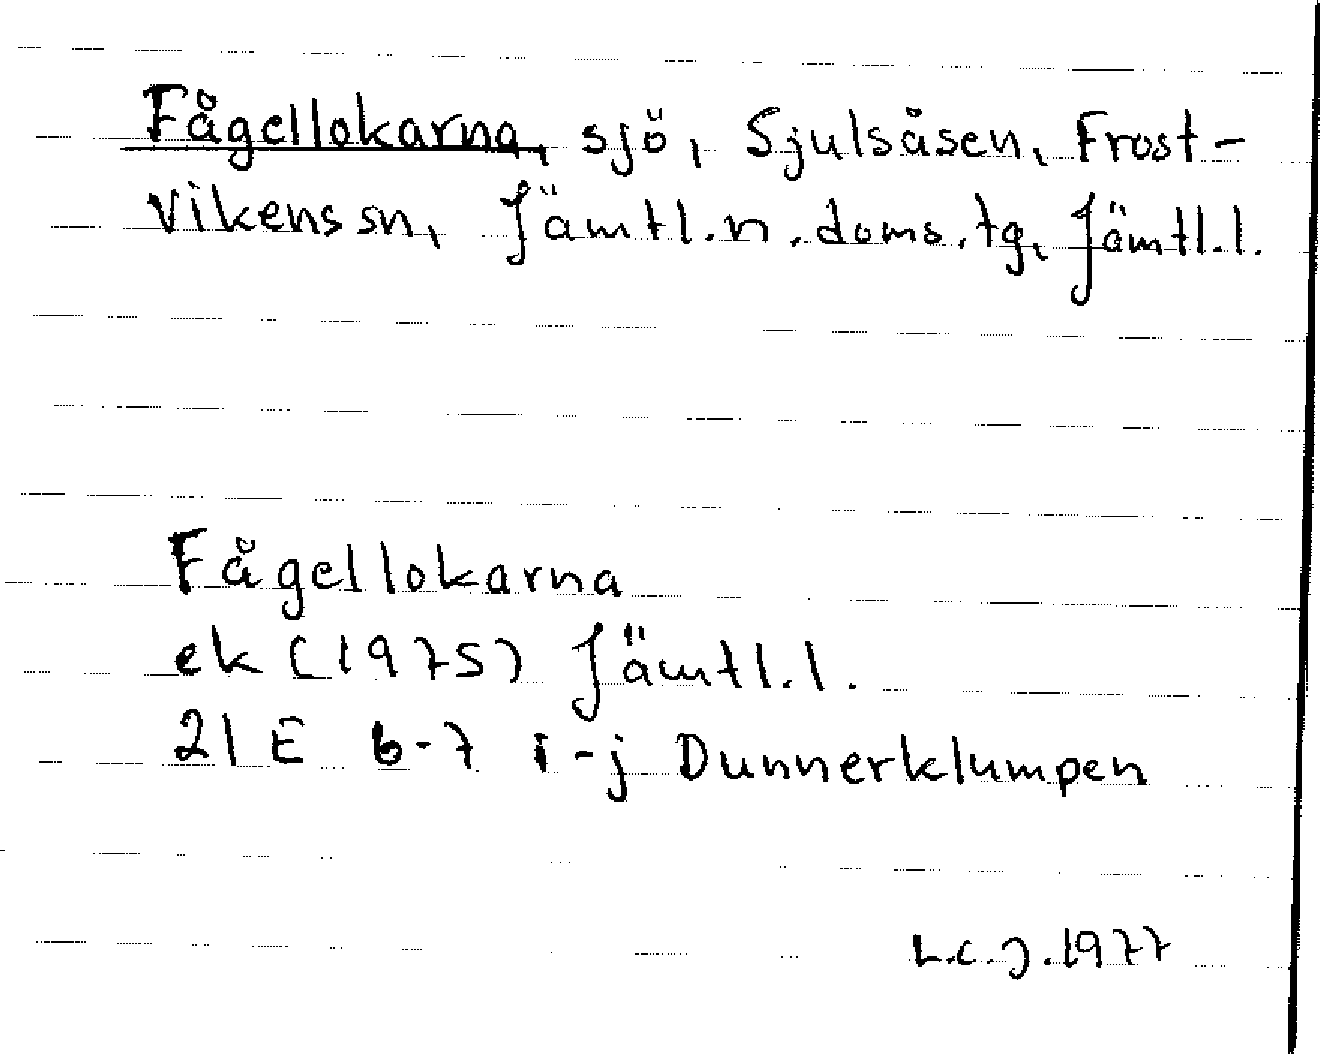 Fågellokarna, sjö, Sjulsåsen, Frost-
Vikens sn, Jämtl.n.doms.tg, Jämtl.l.
Fågellokarna
ek (1975) Jämtl.l.
21E 6-7 i-j Dunnerklumpen
L.C.J.1977